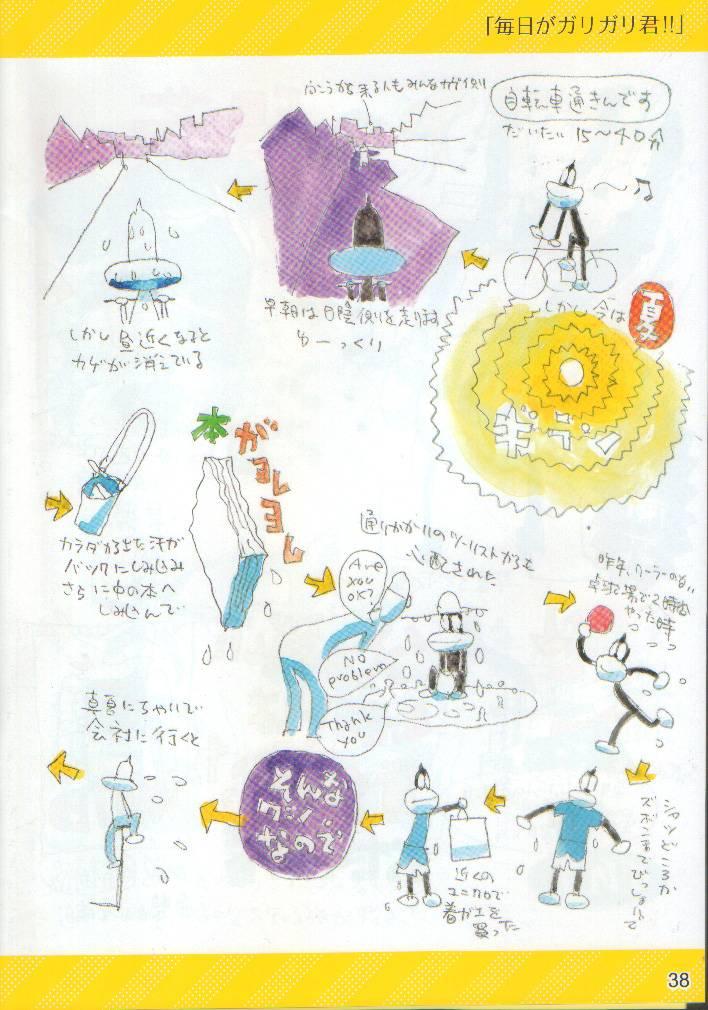 「毎日がガリガリ君!!」
自転車通きんです
だいたい 15〜40分
向こうから来る人もみんなカゲ側
早朝は日陰側を走ります
ゆーっくり
しかし昼近くなると
カゲが消えている
しかし今は
真夏
ギラン
カラダから出た汗が
バックにしみ込み
さらに中の本へ
しみ込んで
本がヨレヨレ
通りがかりのツーリストからも
心配された
Are you OK?
No problem
Thank you
昨年、クーラーのない
卓球場で2時間
やった時
シャツどころか
ズボンまでびっしょりで
近くの
ユニクロで
着がえを
買った
そんな
ワシ
なので
真夏にチャリで
会社に行くと
38